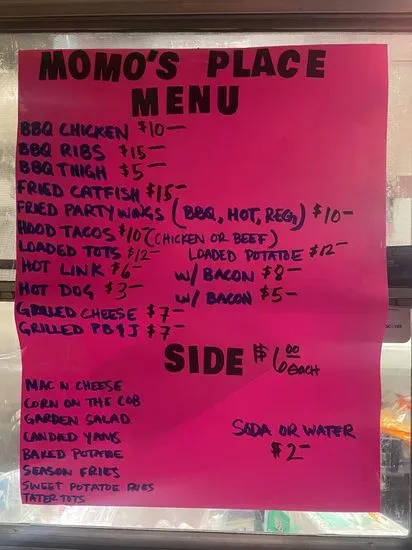 MOMO'S PLACE
MENU
BBQ CHICKEN $10—
BBQ RIBS $15—
BBQ THIGH $5—
FRIED CATFISH $15—
FRIED PARTY WINGS (BBQ, HOT, REG) $10—
HOOD TACOS $10—(CHICKEN OR BEEF)
LOADED TOTS $12— LOADED POTATOE $12—
HOT LINK $6— W/ BACON $8—
HOT DOG $3— W/ BACON $5—
GRILLED CHEESE $7—
GRILLED PB&J $7—
SIDE $6.00 EACH
MAC N CHEESE
CORN ON THE COB
GARDEN SALAD
CANDIED YAMS
BAKED POTATOE
SEASON FRIES
SWEET POTATOE FRIES
TATER TOTS
SODA OR WATER
$2—